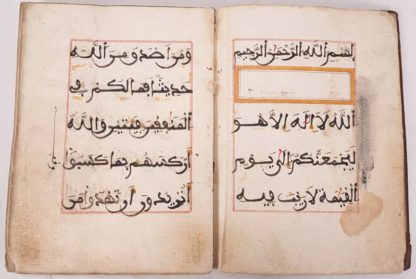 بسم الله الرحمن الرحيم
الله لا اله الا هو
ليجمعنكم الى يوم
القيمة لا ريب فيه
ومن اصدق من الله
حديثا فما لكم في
المنفقين فيتين والله
اركسهم بما كسبوا
اتريدون ان تهدوا من